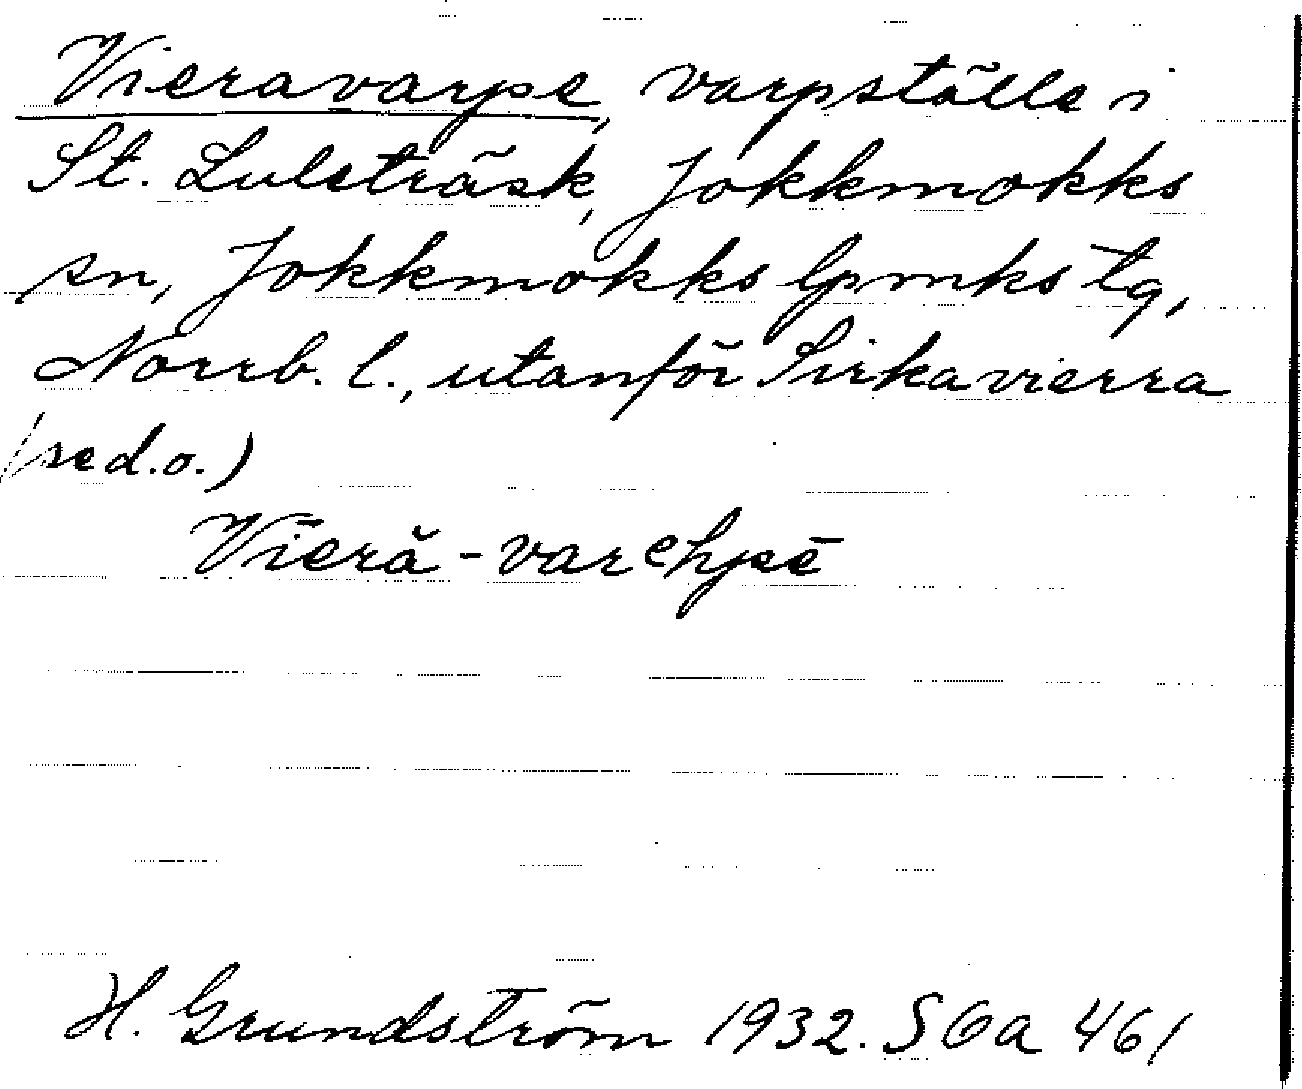 Vieravarpe, varpställe i
St. Luleträsk, Jokkmokks
sn, Jokkmokks lpmks tg,
Norrb. l., utanför Sirkavierra
(se d.o.)
Vīerȧ̆-varehpē
H. Grundström 1932. SOa 461